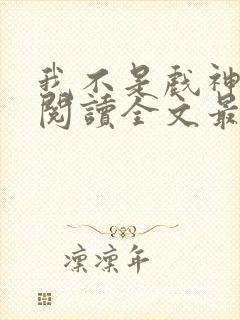 我不是戲神
閱讀全文最
凛凛年